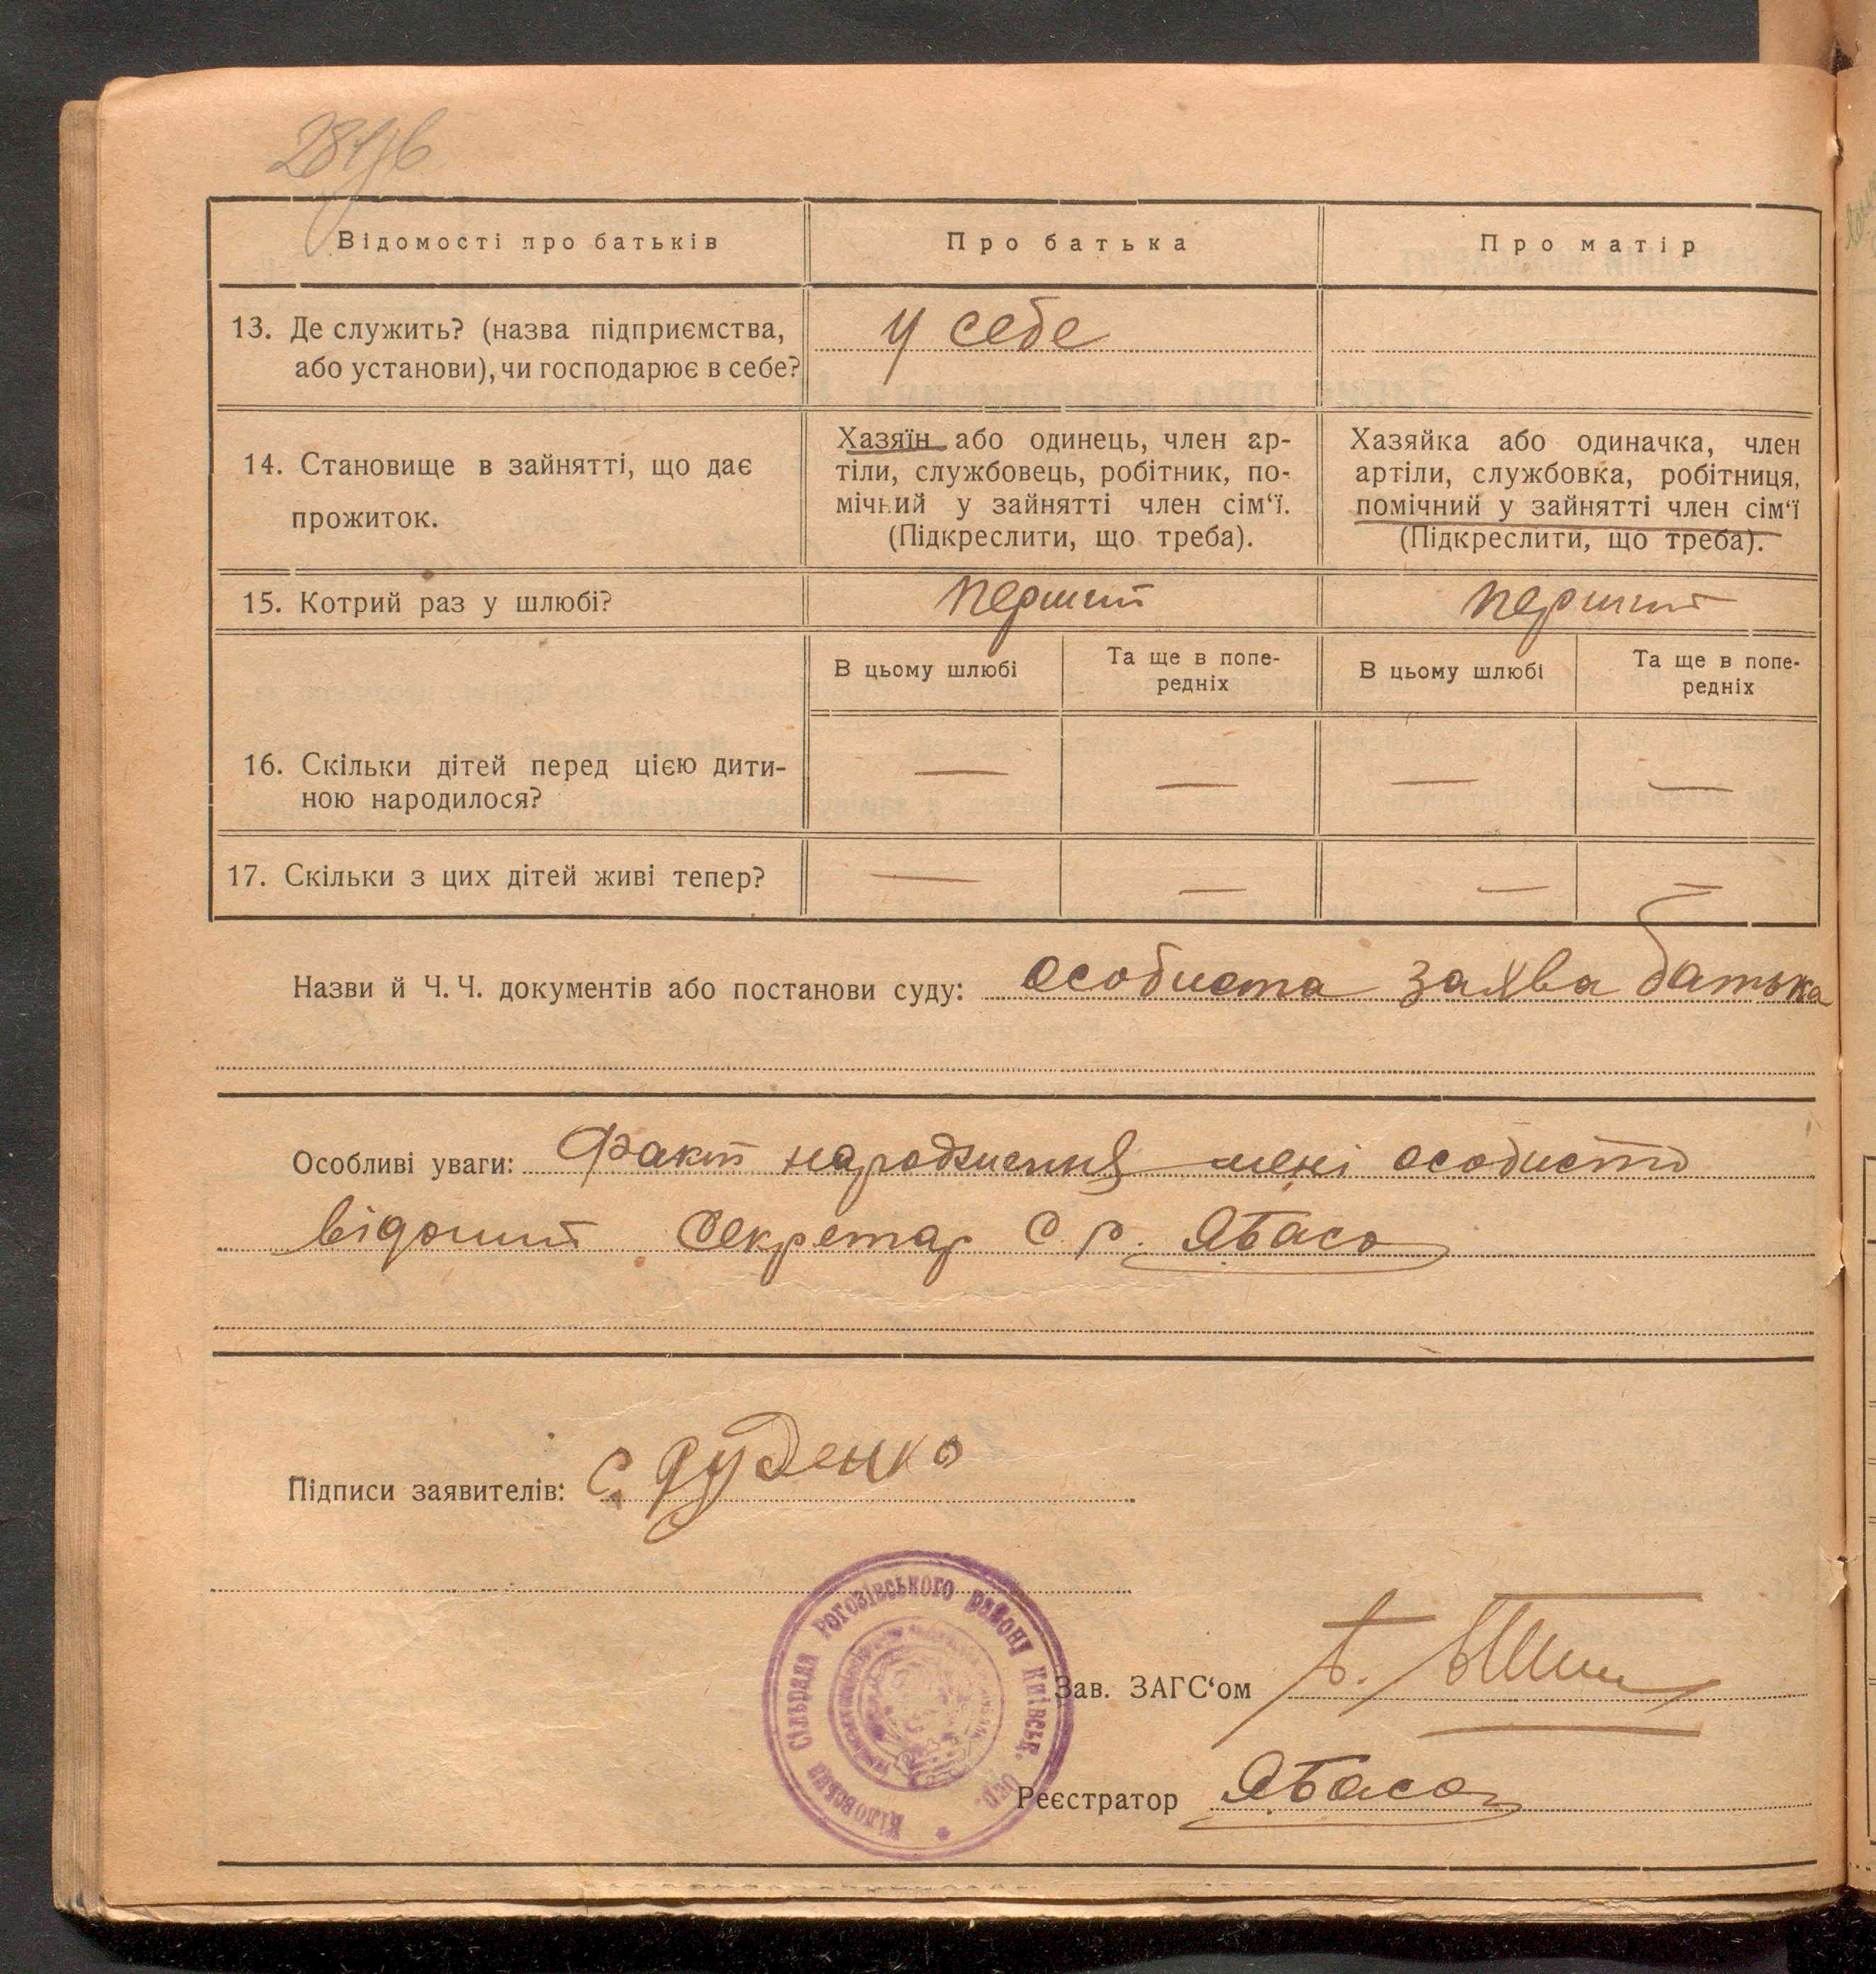 Відомості про батьків
Про батька
Про матір
13. Де служить? (назва підприємства,
або установи), чи господарює в себе?
у себе
14. Становище в зайнятті, що дає
прожиток.
Хазяїн або одинець, член ар-
тіли, службовець, робітник, по-
мічний у зайнятті член сім‘ї.
(Підкреслити, що треба).
Хазяйка або одиначка, член
артіли, службовка, робітниця,
помічний у зайнятті член сім‘ї
(Підкреслити, що треба).
15. Котрий раз у шлюбі?
перший
перший
В цьому шлюбі
Та ще в попе-
редніх
В цьому шлюбі
Та ще в попе-
редніх
16. Скільки дітей перед цією дити-
ною народилося?
— — — —
17. Скільки з цих дітей живі тепер?
— — — —
Назви й Ч. Ч. документів або постанови суду: особиста заява батька
Особливі уваги: Факт народження мені особисто
відомий Секретар С. р.
Підписи заявителів: С. Руденко
Сільрада Рогозівського району Київськ. Окр.
Зав. ЗАГС‘ом
Реєстратор